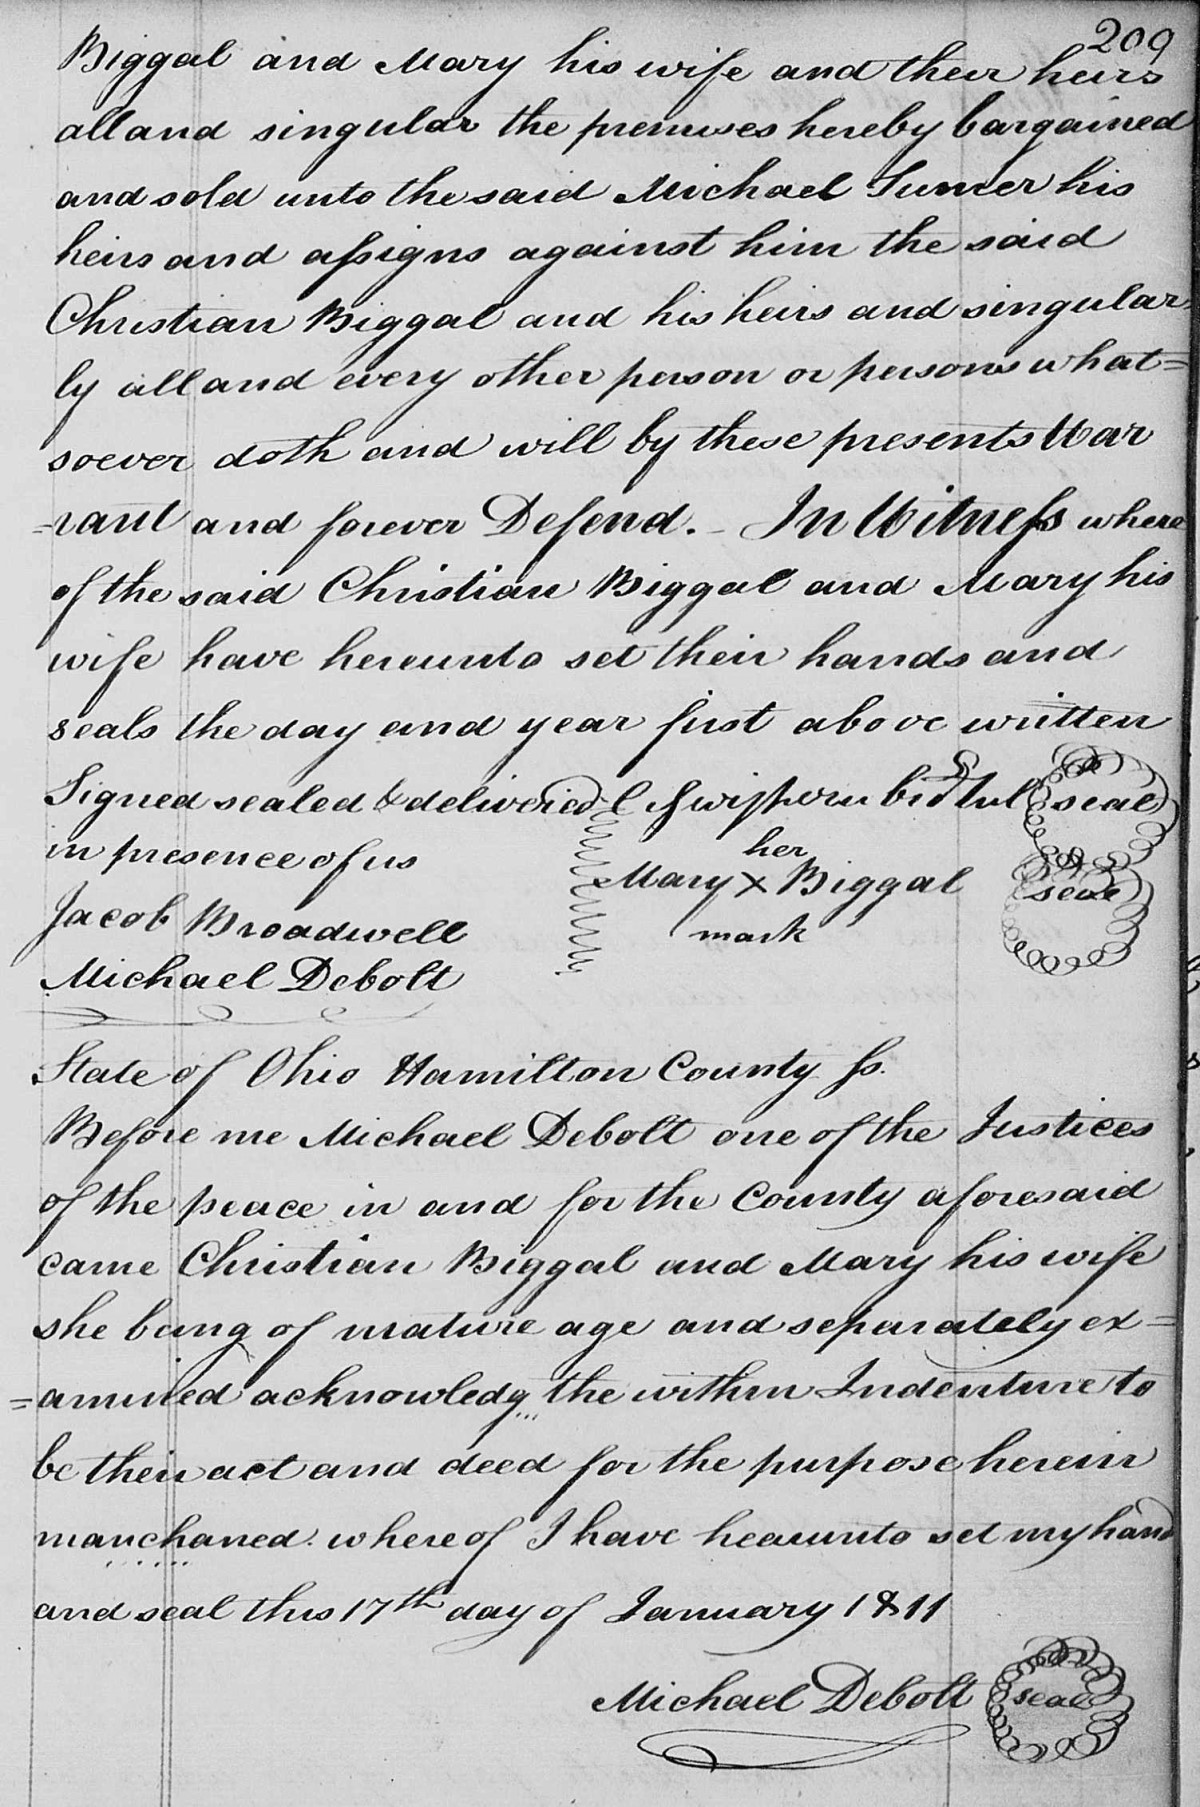 209
Biggal and Mary his wife and their heirs
all and singular the premises hereby bargained
and sold unto the said Michael Turner his
heirs and assigns against him the said
Christian Biggal and his heirs and singular
ly all and every other person or persons what=
soever doth and will by these presents War
=rant and forever Defend. – In Witness where
of the said Christian Biggal and Mary his
wife have hereunto set their hands and
seals the day and year first above written
Signed sealed & delivered seal
in presence of us
her
Mary X Biggal seal
mark
Jacob Broadwell
Michael Debolt
State of Ohio Hamilton County ss.
Before me Michael Debolt one of the Justices
of the peace in and for the County aforesaid
came Christian Biggal and Mary his wife
she being of mature age and separately ex=
=amined acknowledg the within Indenture to
be their act and deed for the purpose herein
manchaned where of I have heaunto set my hand
and seal this 17th day of January 1811
Michael Debolt seal